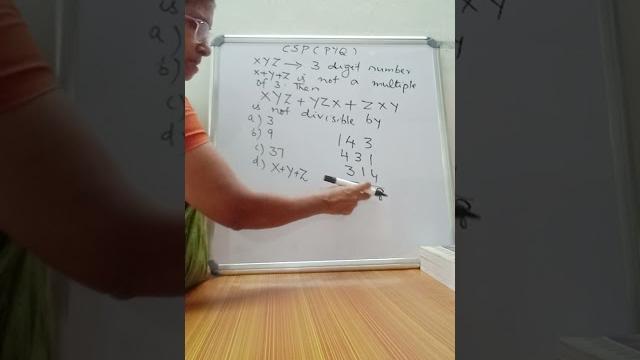 CSP (PYQ)
XYZ → 3 digit number
X+Y+Z is not a multiple
of 3. Then
XYZ + YZX + ZXY
is not divisible by
a) 3
b) 9
c) 37
d) X+Y+Z
143
431
314
8